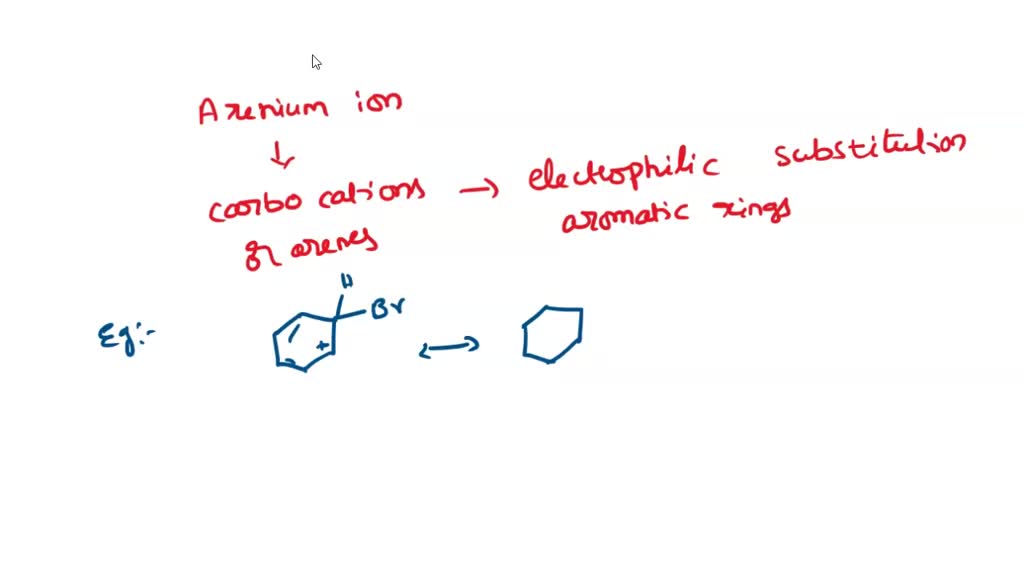 Arenium ion
carbo cations → electrophilic substitution
of arenes aromatic rings
H
Eg:- Br
+